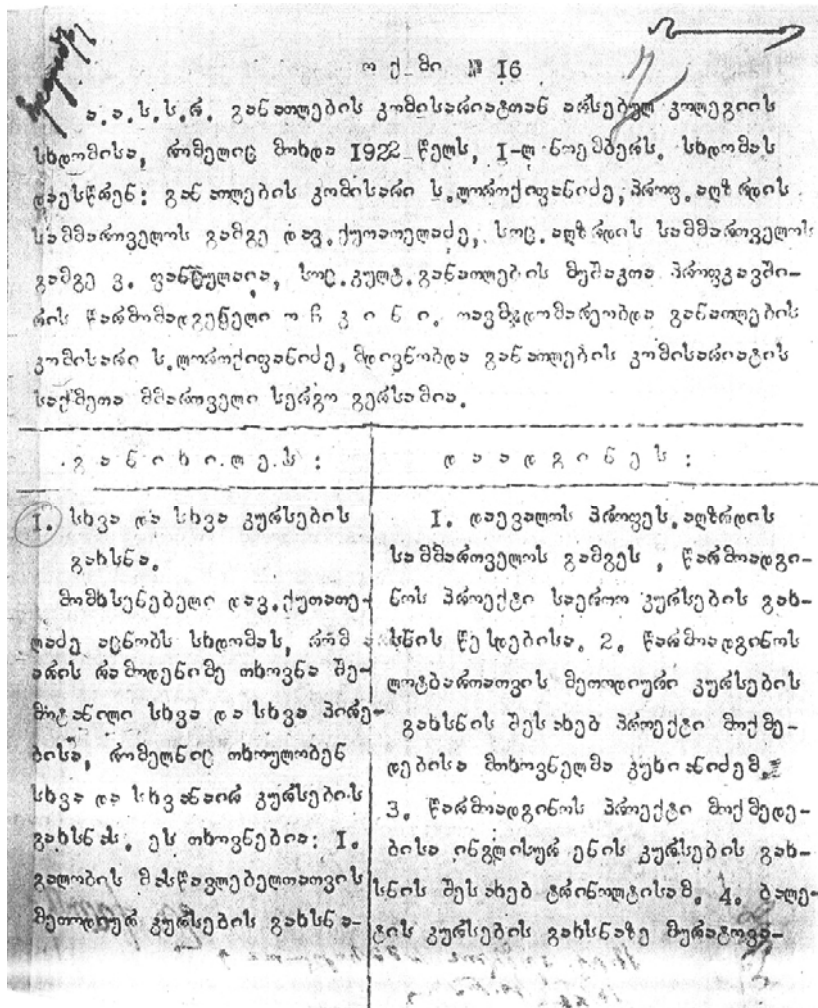 ოქმი № 16
ა.ა.ს.ს.რ. განათლების კომისარიატთან არსებულ კოლეგიის
სხდომისა, რომელიც მოხდა 1922 წელს, I-ლ ნოემბერს. სხდომას
დაესწრენ: განათლების კომისარი ს.ლორთქიფანიძე, პროფ.აღზრდის
სამმართველოს გამგე დავ.ქუთათელაძე, სოც.აღზრდის სამმართველოს
გამგე ვ. ფანცულაია, სოც.კულტ.განათლების მუშაკთა პროფკავში-
რის წარმომადგენელი ოჩკინი. თავმჯდომარეობდა განათლების
კომისარი ს.ლორთქიფანიძე, მდივნობდა განათლების კომისარიატის
საქმეთა მმართველი სერგო გერსამია.
განიხილეს:
I. სხვა და სხვა კურსების
გახსნა.
მომხსენებელი დავ.ქუთათე-
ლაძე აცნობს სხდომას, რომ
არის რამოდენიმე თხოვნა შე-
მოტანილი სხვა და სხვა პირე-
ბისა, რომელნიც თხოულობენ
სხვა და სხვანაირ კურსების
გახსნას. ეს თხოვნებია: I.
გალობის მასწავლებელთათვის
მეთოდიურ კურსების გახსნა-
დაადგინეს:
I. დაევალოს პროფეს.აღზრდის
სამმართველოს გამგეს, წარმოადგი-
ნოს პროექტი საერთო კურსების გახ-
სნის წესდებისა. 2. წარმოადგინოს
ლოტბართათვის მეთოდიური კურსების
გახსნის შესახებ პროექტი მოქმე-
დებისა მთხოვნელმა კუხიანიძემ.
3. წარმოადგინოს პროექტი მოქმედე-
ბისა ინგლისურ ენის კურსების გახ-
სნის შესახებ ტრინოლტისამ. 4. ბალე-
ტის კურსების გახსნაზე მურატოვა-